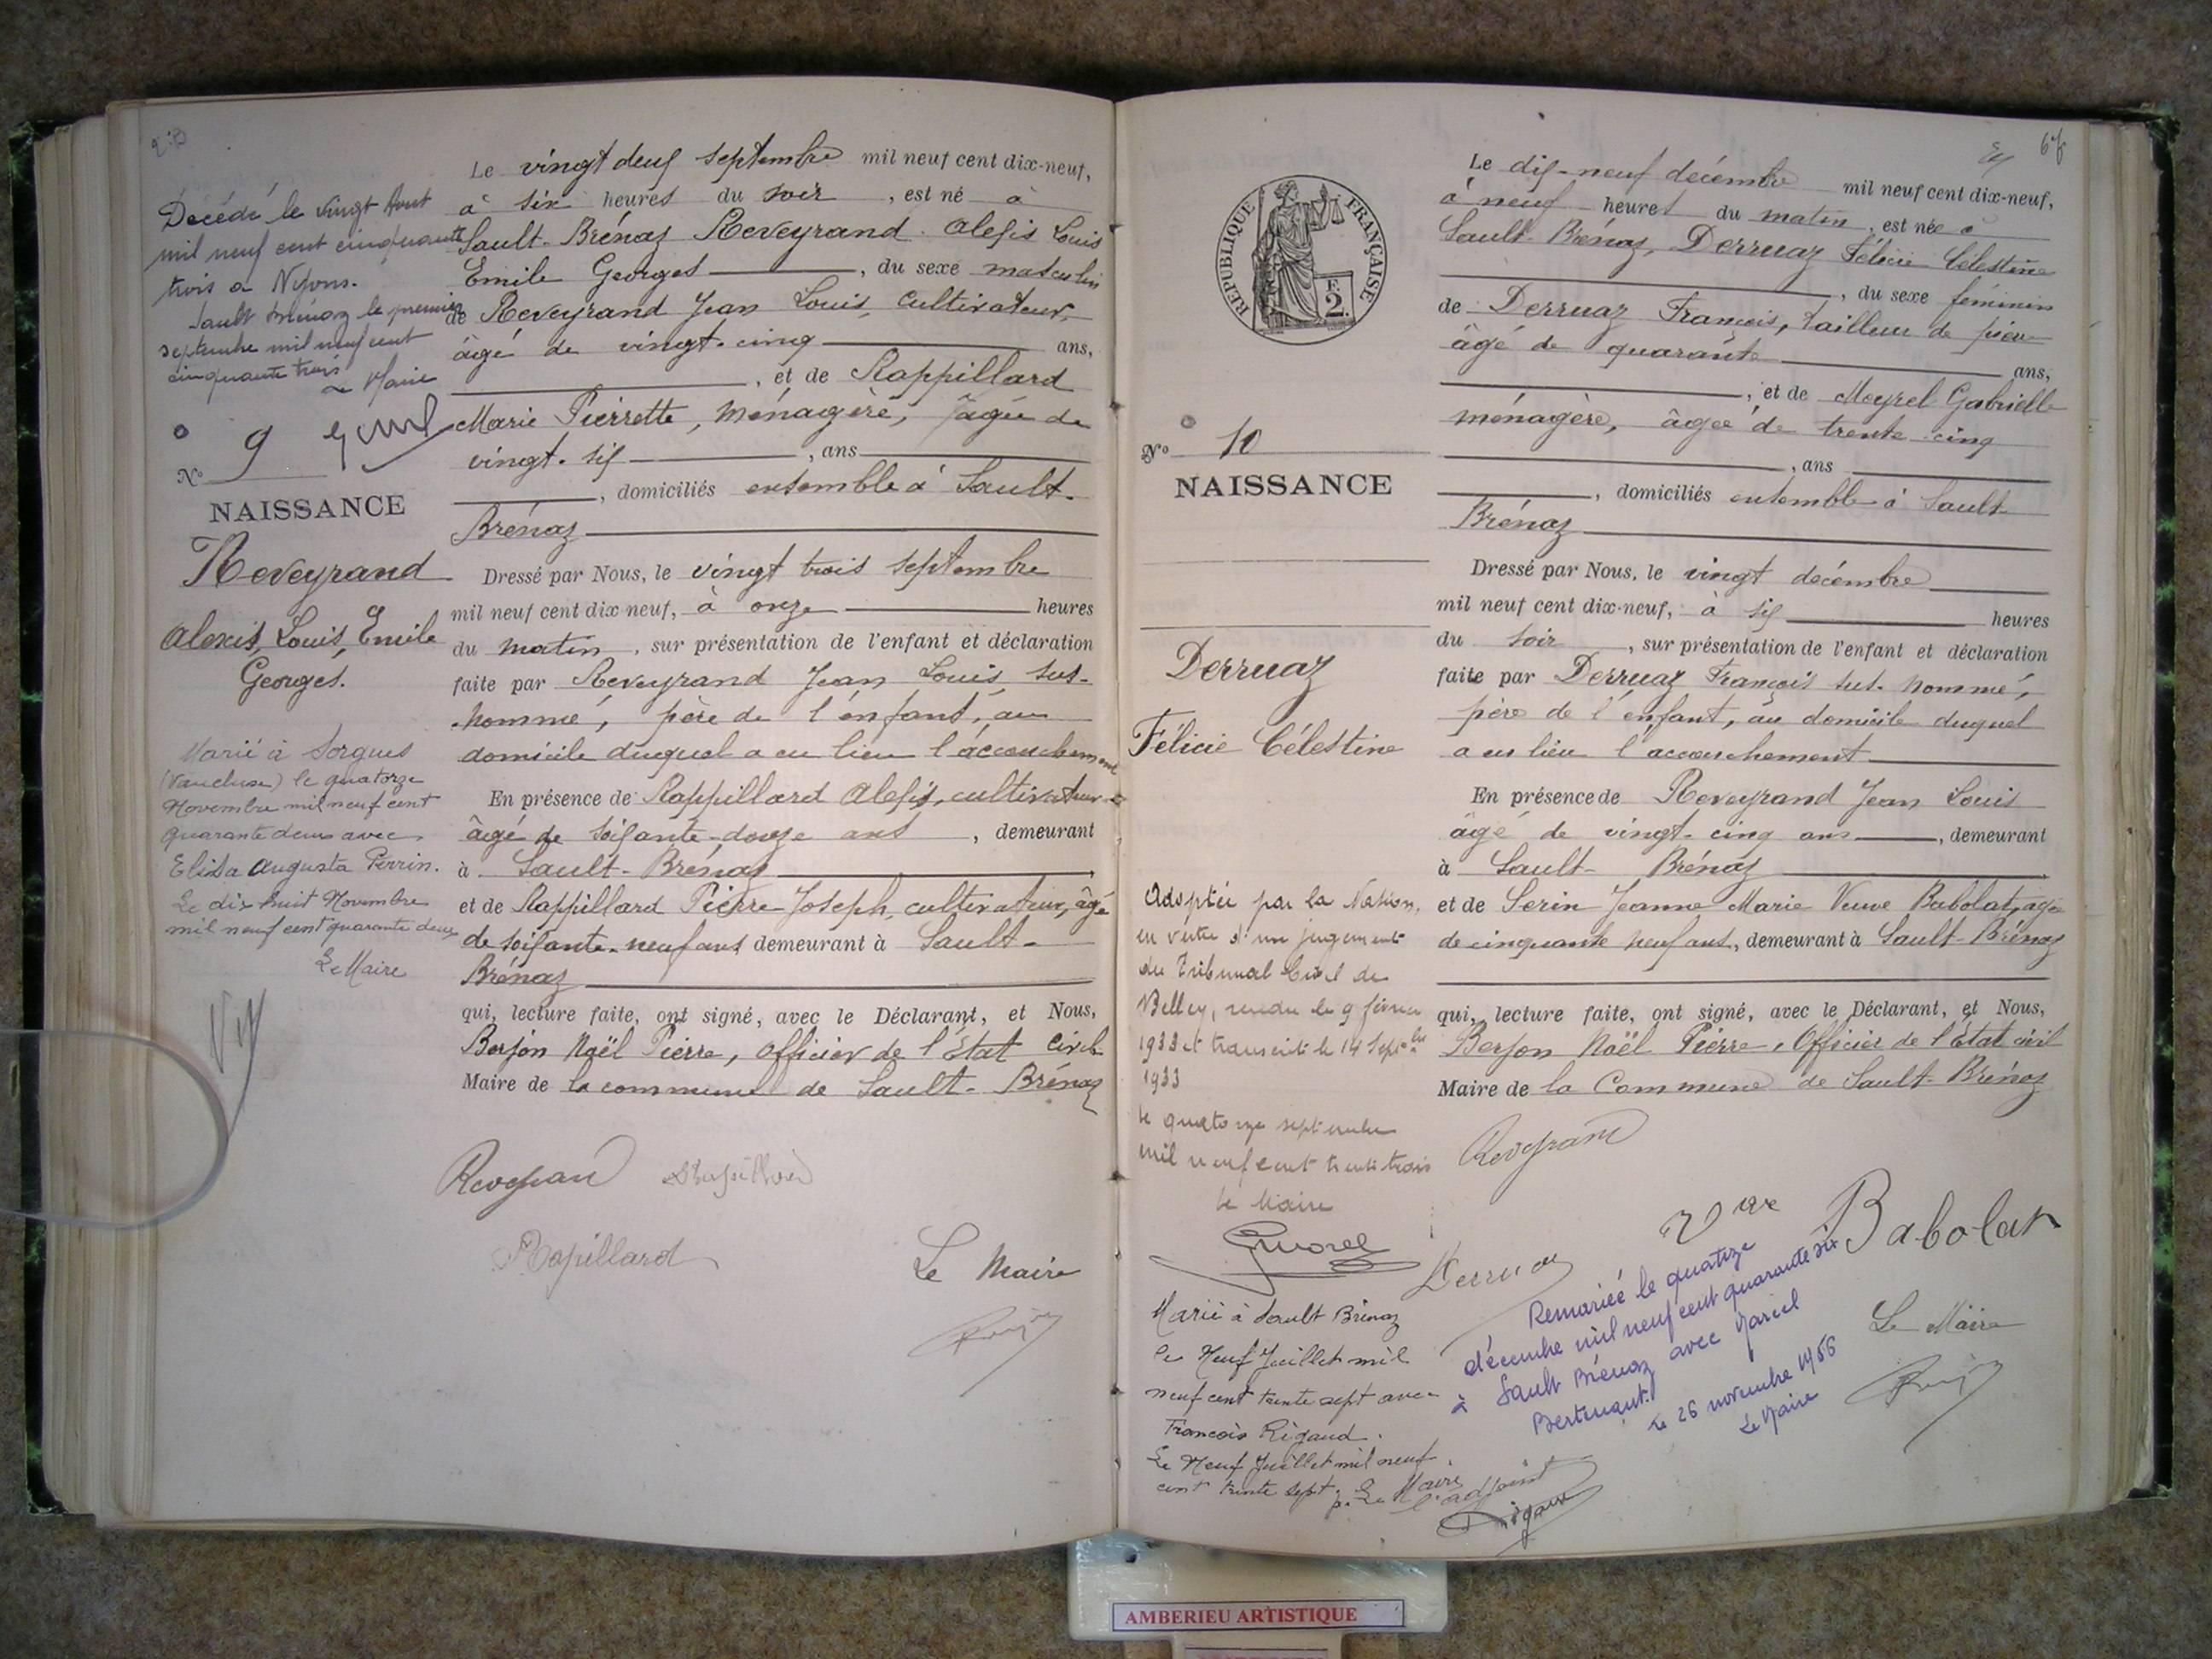 Décédé le vingt Aout
mil neuf cent cinquante
trois a Nyons.
Sault Brénaz le premier
septembre mil neuf cent
cinquante trois
Le Maire
No 9
NAISSANCE
Reveyrand
Alexis, Louis, Emile
Georges.
Marié à Sorgues
(Vaucluse) le quatorze
Novembre mil neuf cent
quarante deux avec
Elisa Augusta Perrin.
Le dix huit Novembre
mil neuf cent quarante deux
Le Maire
Le vingt deux septembre mil neuf cent dix-neuf,
à six heures du soir, est né à
Sault-Brénaz Reveyrand Alexis Louis
Emile Georges, du sexe masculin
de Reveyrand Jean Louis, cultivateur,
âgé de vingt-cinq ans,
, et de Rappillard
Marie Pierrette, ménagère, âgée de
vingt-six, ans
, domiciliés ensemble à Sault-
Brénaz
Dressé par Nous, le vingt trois septembre
mil neuf cent dix-neuf, à onze heures
du matin, sur présentation de l'enfant et déclaration
faite par Reveyrand Jean Louis, sus-
nommé, père de l'enfant, au
domicile duquel a eu lieu l'accouchement
En présence de Rappillard Alexis, cultivateur
âgé de soixante-douze ans, demeurant
à Sault-Brénaz
et de Rappillard Pierre Joseph, cultivateur, âgé
de soixante-neuf ans demeurant à Sault-
Brénaz
qui, lecture faite, ont signé, avec le Déclarant, et Nous,
Berjon Noël Pierre, officier de l'État Civil
Maire de la commune de Sault-Brénaz
Reveyran
Rapillard
Le Maire
67
RÉPUBLIQUE FRANÇAISE
F.
2.
No 10
NAISSANCE
Derruaz
Félicie Célestine
Adoptée par la Nation,
en vertu d'un jugement
du Tribunal Civil de
Belley, rendu le 9 février
1933 et transcrit le 14 Septbre
1933
Le quatorze septembre
mil neuf cent trente trois
Le Maire
Marié à Sault Brénaz
le Neuf Juillet mil
neuf cent trente sept avec
François Rigaud.
Le Neuf Juillet mil neuf
cent trente sept. p. Le Maire
l'adjoint
Rigaud
Le dix-neuf décembre mil neuf cent dix-neuf,
à neuf heures du matin, est née à
Sault-Brénaz, Derruaz Félicie Célestine
, du sexe féminin
de Derruaz François, tailleur de pierre
âgé de quarante ans,
, et de Meyrel Gabrielle
ménagère, âgée de trente-cinq
, ans
, domiciliés ensemble à Sault-
Brénaz
Dressé par Nous, le vingt décembre
mil neuf cent dix-neuf, à six heures
du soir, sur présentation de l'enfant et déclaration
faite par Derruaz François sus-nommé,
père de l'enfant, au domicile duquel
a eu lieu l'accouchement
En présence de Reveyrand Jean Louis
âgé de vingt-cinq ans, demeurant
à Sault-Brénaz
et de Serin Jeanne Marie Veuve Babolat, âgée
de cinquante neuf ans, demeurant à Sault-Brénaz
qui, lecture faite, ont signé, avec le Déclarant, et Nous,
Berjon Noël Pierre, Officier de l'État civil
Maire de la Commune de Sault-Brénaz
Reveyrand
Vve Babolat
Derruaz
Remariée le quatorze
décembre mil neuf cent quarante six
à Sault Brénaz avec Marcel
Bertenant.
Le 26 novembre 1956
Le Maire
Le Maire
AMBERIEU ARTISTIQUE